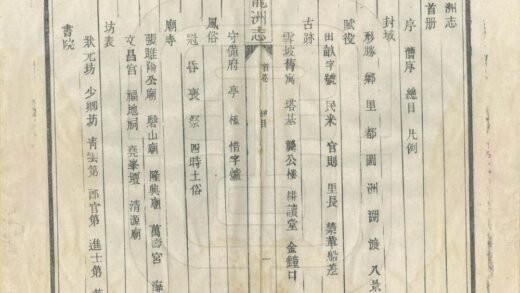 洲志
首册
序 舊序 總目 凡例
封域
形勝 鄉里 都圖 洲湖 渡 八景
賦役
田畝字號 民米 官則 里長 禁革船差
古跡
雪坡舊寓 塔基 龔公樓 耕讀堂 金鐘口
龍洲志 首卷 總目 一
守備府 亭 樵 惜字爐
風俗
冠 昏 喪 祭 四時土俗
廟寺
張睢陽公廟 磨山廟 隆興廟 萬壽宮
文昌宮 福地祠 堯峯壇 清源廟
坊表
狀元坊 少卿坊 青雲第 郎官第 進士第
書院